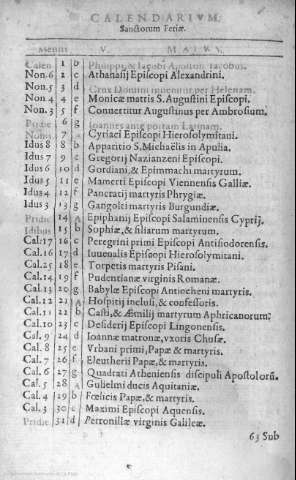 CALENDARIVM.
Sanctorum Feriæ.
Mensis V. MAIVS.
Calen 1 b Philippi, & Iacobi Apostol. Iacobus.
Non.6 2 c Athanasij Episcopi Alexandrini.
Non.5 3 d Crux Domini inuenitur per Helenam.
Non.4 4 e Monicæ matris S. Augustini Episcopi.
Non.3 5 f Conuertitur Augustinus per Ambrosium.
Pridie 6 g Ioannes ante portam Latinam.
Nonis 7 A Cyriaci Episcopi Hierosolymitani.
Idus 8 8 b Apparitio S. Michaëlis in Apulia.
Idus 7 9 c Gregorij Nazianzeni Episcopi.
Idus 6 10 d Gordiani, & Epimachi martyrum.
Idus 5 11 e Mamerti Episcopi Viennensis Galliæ.
Idus 4 12 f Pancratij martyris Phrygiæ.
Idus 3 13 g Gangolfi martyris Burgundiæ.
Pridie 14 A Epiphanij Episcopi Salaminensis Cyprij.
Idibus 15 b Sophiæ, & filiarum martyrum.
Cal.17 16 c Peregrini primi Episcopi Antisiodorensis.
Cal.16 17 d Iuuenalis Episcopi Hierosolymitani.
Cal.25 18 e Torpetis martyris Pisani.
Cal.14 19 f Pudentianæ virginis Romanæ.
Cal.13 20 g Babylæ Episcopi Antiocheni martyris.
Cal.12 21 A Hospitij inclusi, & confessoris.
Cal.11 22 b Casti, & Æmilij martyrum Aphricanorum.
Cal.10 23 c Desiderij Episcopi Lingonensis.
Cal.9 24 d Ioannæ matronæ, vxoris Chusæ.
Cal.8 25 e Vrbani primi, Papæ & martyris.
Cal.7 26 f Eleutherii Papæ, & martyris.
Cal.6 27 g Quadrati Atheniensis discipuli Apostolorũ.
Cal.5 28 A Gulielmi ducis Aquitaniæ.
Cal.4 29 b Fœlicis Papæ, & martyris.
Cal.3 30 c Maximi Episcopi Aquensis.
Pridie 31 d Perronillæ virginis Galileæ.
63 Sub